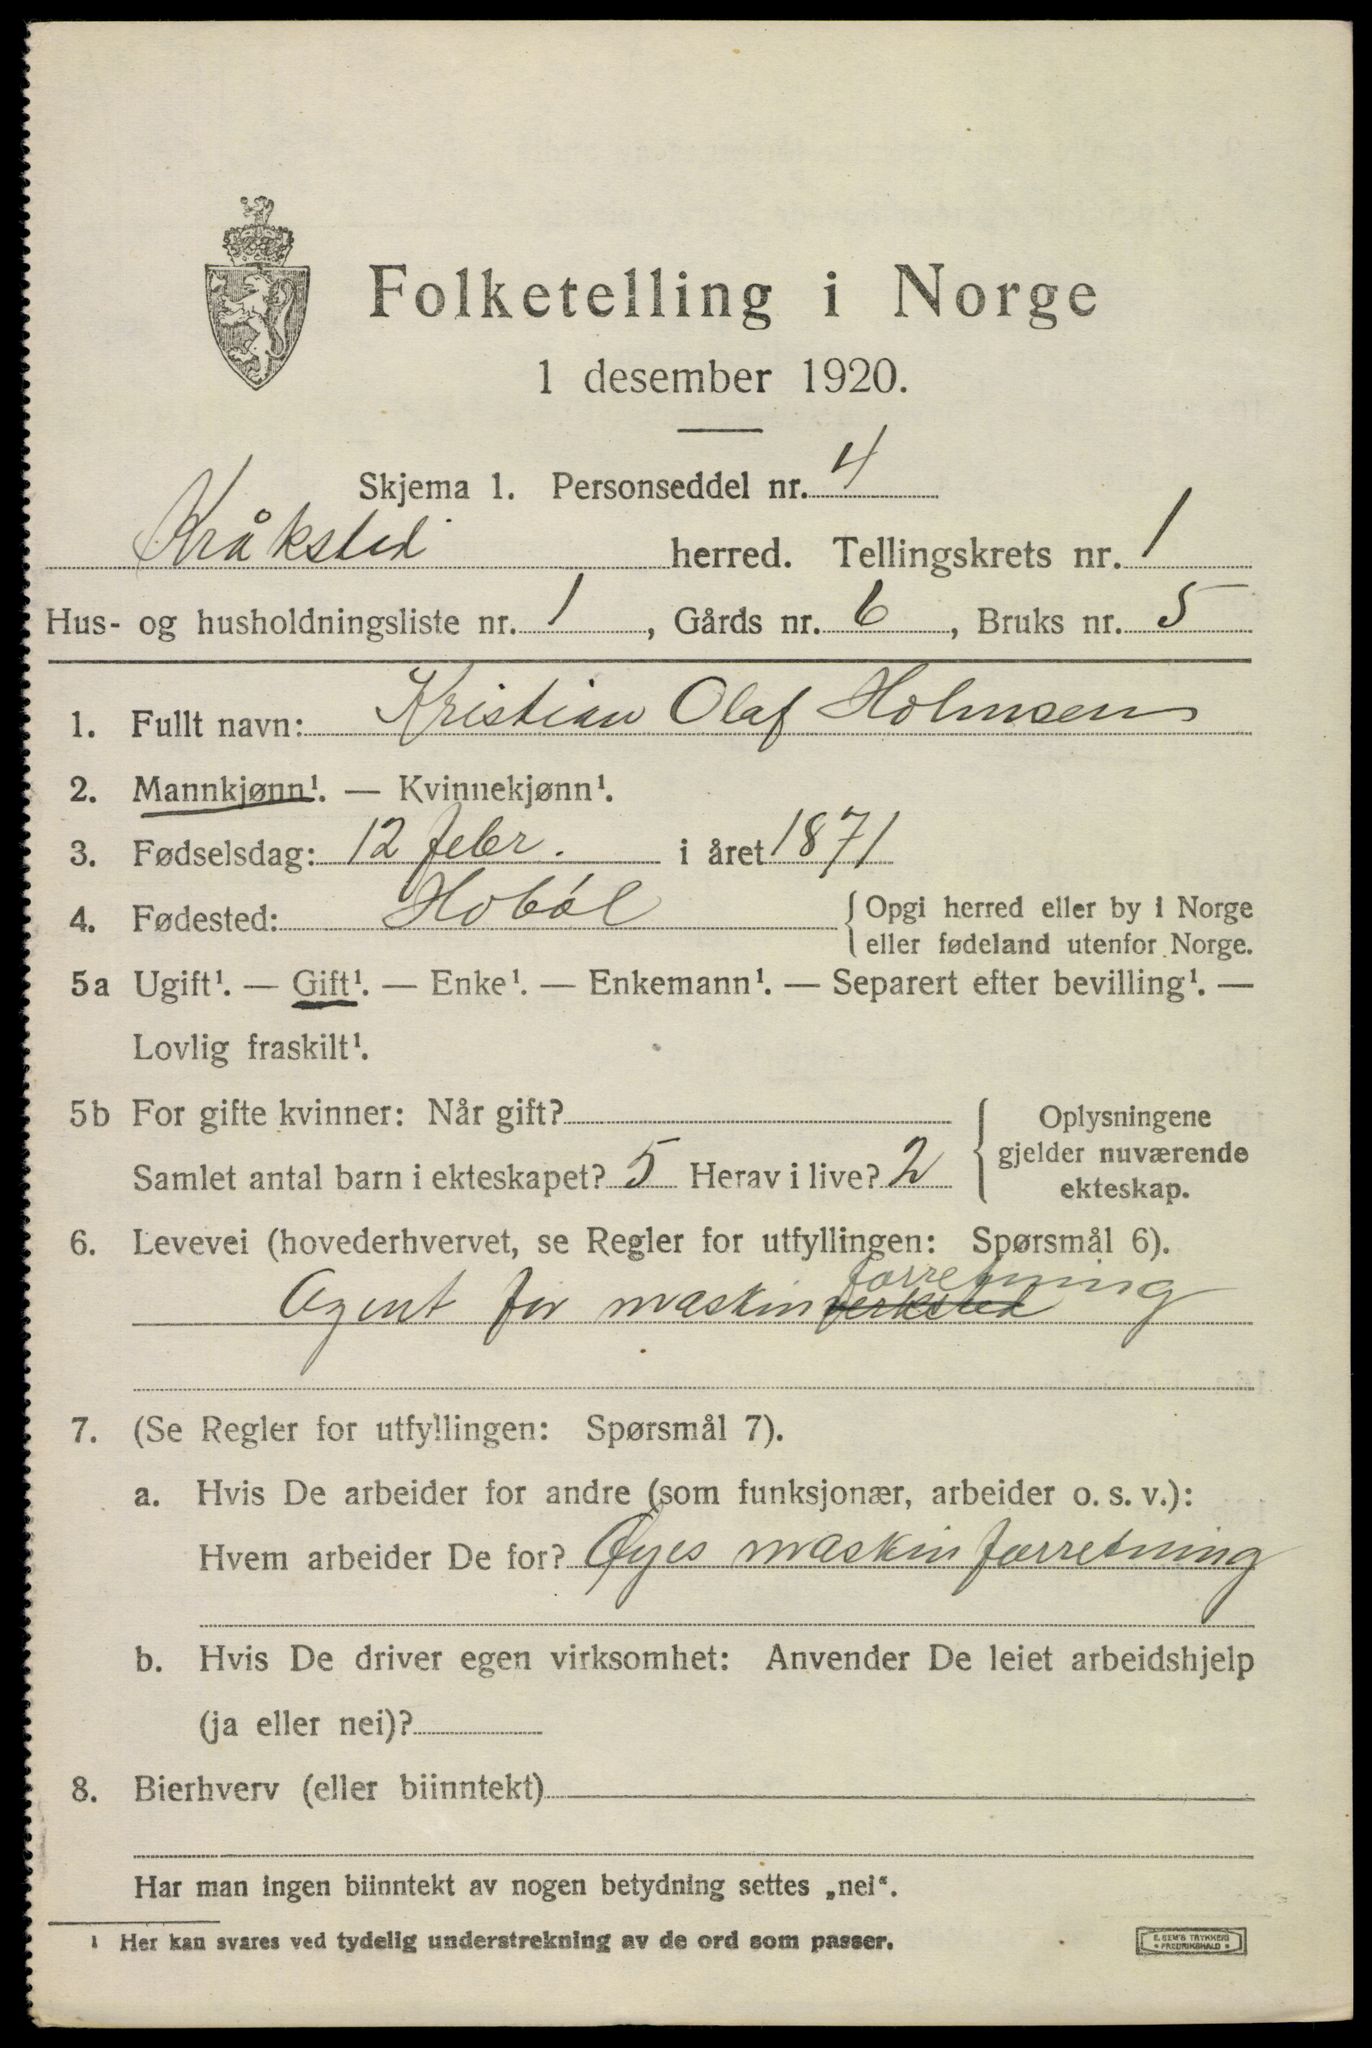 Folketelling i Norge
1 desember 1920.
Skjema 1. Personseddel nr. 4
Kråksted herred. Tellingskrets nr. 1
Hus- og husholdningsliste nr. 1, Gårds nr. 6, Bruks nr. 5
1. Fullt navn: Kristian Olaf Holmsen
2. Mannkjønn¹. — Kvinnekjønn¹.
3. Fødselsdag: 12 febr. i året 1871
4. Fødested: Hobøl { Opgi herred eller by i Norge
eller fødeland utenfor Norge.
5a Ugift¹. — Gift¹. — Enke¹. — Enkemann¹. — Separert efter bevilling¹. —
Lovlig fraskilt¹.
5b For gifte kvinner: Når gift? { Oplysningene
gjelder nuværende
Samlet antal barn i ekteskapet? 5 Herav i live? 2
ekteskap.
6. Levevei (hovederhvervet, se Regler for utfyllingen: Spørsmål 6).
forretning
Agent for maskinverksted
7. (Se Regler for utfyllingen: Spørsmål 7).
a. Hvis De arbeider for andre (som funksjonær, arbeider o. s. v.):
Hvem arbeider De for? Øyes maskinforretning
b. Hvis De driver egen virksomhet: Anvender De leiet arbeidshjelp
(ja eller nei)?
8. Bierhverv (eller biinntekt)
Har man ingen biinntekt av nogen betydning settes „nei“.
¹ Her kan svares ved tydelig understrekning av de ord som passer.
E. SEM'S TRYKKERI
• FREDRIKSHALD •